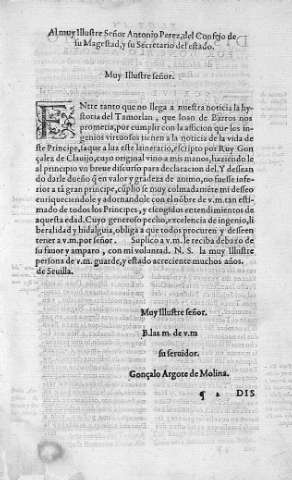 Al muy Illustre Señor Antonio Perez, del Consejo de
su Magestad, y su Secretario del estado.
Muy Illustre señor.
ENtre tanto que no llega a nuestra noticia la hy-
storia del Tamorlan, que Ioan de Barros nos
prometia, por cumplir con la aficion que los in-
genios virtuosos tienen a la noticia de la vida de
este Principe, saque a luz este Itinerario, escripto por Ruy Gon-
çalez de Clauijo, cuyo original vino a mis manos, haziendole
al principio vn breve discurso para declaracion del. Y dessean
do darle dueño q̃ en valor y grãdeza de animo, no fuesse inferi-
or a tã gran principe, cũplio se muy colmadamẽte mi desseo
enriqueciendole y adornandole con el nõbre de v.m. tan esti-
mado de todos los Principes, y claros entendimientos de
aquesta edad. Cuyo generoso pecho, excelencia de ingenio, li
beralidad y hidalguia, obliga a que todos procuren y desseen
tener a v.m. por señor. Suplico a v.m. le reciba debaxo de
su fauor y amparo, con mi voluntad. N. S. la muy Illustre
persona de v.m. guarde, y estado acreciente muchos años.
de Seuilla.
Muy Illustre señor.
B. las m. de v.m
su seruidor.
Gonçalo Argote de Molina.
¶ 2 DIS